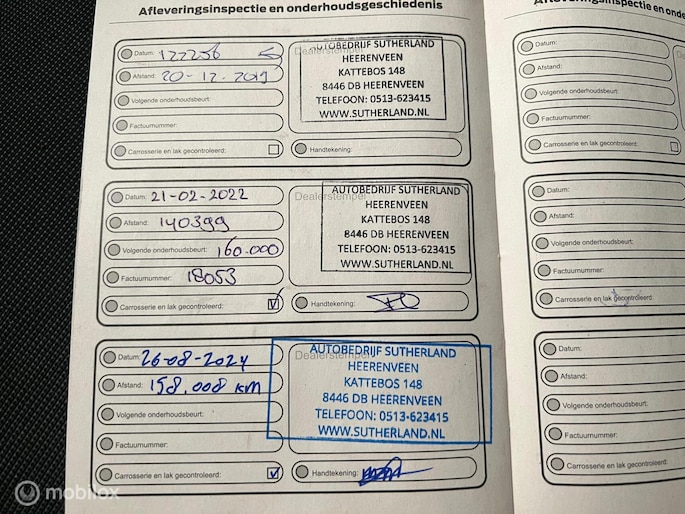 Afleveringsinspectie en onderhoudsgeschiedenis
Datum: 122256
Afstand: 20-12-2019
Volgende onderhoudsbeurt:
Factuurnummer:
Carrosserie en lak gecontroleerd:
Dealerstempel
AUTOBEDRIJF SUTHERLAND
HEERENVEEN
KATTEBOS 148
8446 DB HEERENVEEN
TELEFOON: 0513-623415
WWW.SUTHERLAND.NL
Handtekening:
Datum: 21-02-2022
Afstand: 140399
Volgende onderhoudsbeurt: 160.000
Factuurnummer: 18053
Carrosserie en lak gecontroleerd: V
Dealerstempel
AUTOBEDRIJF SUTHERLAND
HEERENVEEN
KATTEBOS 148
8446 DB HEERENVEEN
TELEFOON: 0513-623415
WWW.SUTHERLAND.NL
Handtekening:
Datum: 26-08-2024
Afstand: 158.008 KM
Volgende onderhoudsbeurt:
Factuurnummer:
Carrosserie en lak gecontroleerd: V
Dealerstempel
AUTOBEDRIJF SUTHERLAND
HEERENVEEN
KATTEBOS 148
8446 DB HEERENVEEN
TELEFOON: 0513-623415
WWW.SUTHERLAND.NL
Handtekening:
Afleveringsinspectie en onde
Datum:
Afstand:
Volgende onderhoudsbeurt:
Factuurnummer:
Carrosserie en lak gecontroleerd:
Datum:
Afstand:
Volgende onderhoudsbeurt:
Factuurnummer:
Carrosserie en lak gecontroleerd:
Datum:
Afstand:
Volgende onderhoudsbeurt:
Factuurnummer:
Carrosserie en lak gecontroleerd:
mobilox